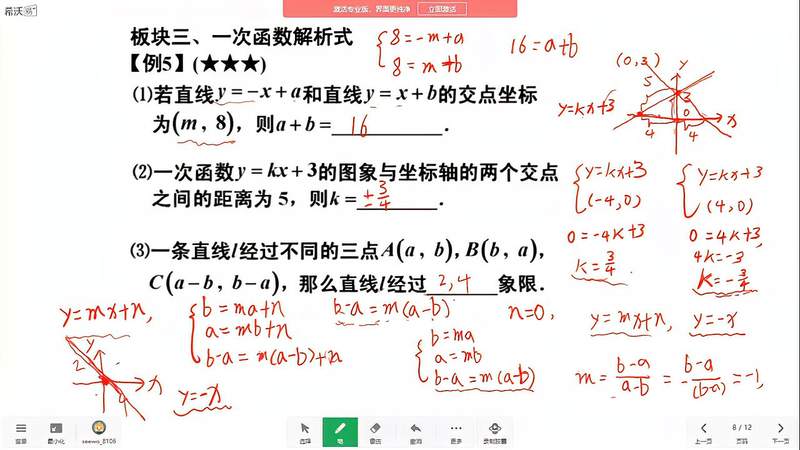 希沃
激活专业版，界面更纯净 立即激活
板块三、一次函数解析式
【例5】(★★★)
⑴若直线y=-x+a和直线y=x+b的交点坐标
为(m, 8)，则a+b=16.
⑵一次函数y=kx+3的图象与坐标轴的两个交点
之间的距离为 5，则k=±3/4.
⑶一条直线l经过不同的三点A(a, b), B(b, a),
C(a-b, b-a)，那么直线l经过2,4象限.
8=-m+a
8=m+b
16=a+b
(0,3)
y
5
3
0
x
y=kx+3
4
4
y=kx+3
(-4,0)
0=-4k+3
k=3/4
y=kx+3
(4,0)
0=4k+3,
4k=-3,
k=-3/4
y=mx+n,
b=ma+n
a=mb+n
b-a=m(a-b)+n
b-a=m(a-b)
n=0,
y=mx+n,
y=-x
b=ma
a=mb
b-a=m(a-b)
m=(b-a)/(a-b)=(b-a)/-(b-a)=-1,
y
2
x
4
y=-x
菜单
最小化
seewo_8106
选择
笔
橡皮
撤消
更多
录制胶囊
上一页
8 / 12
页码
下一页